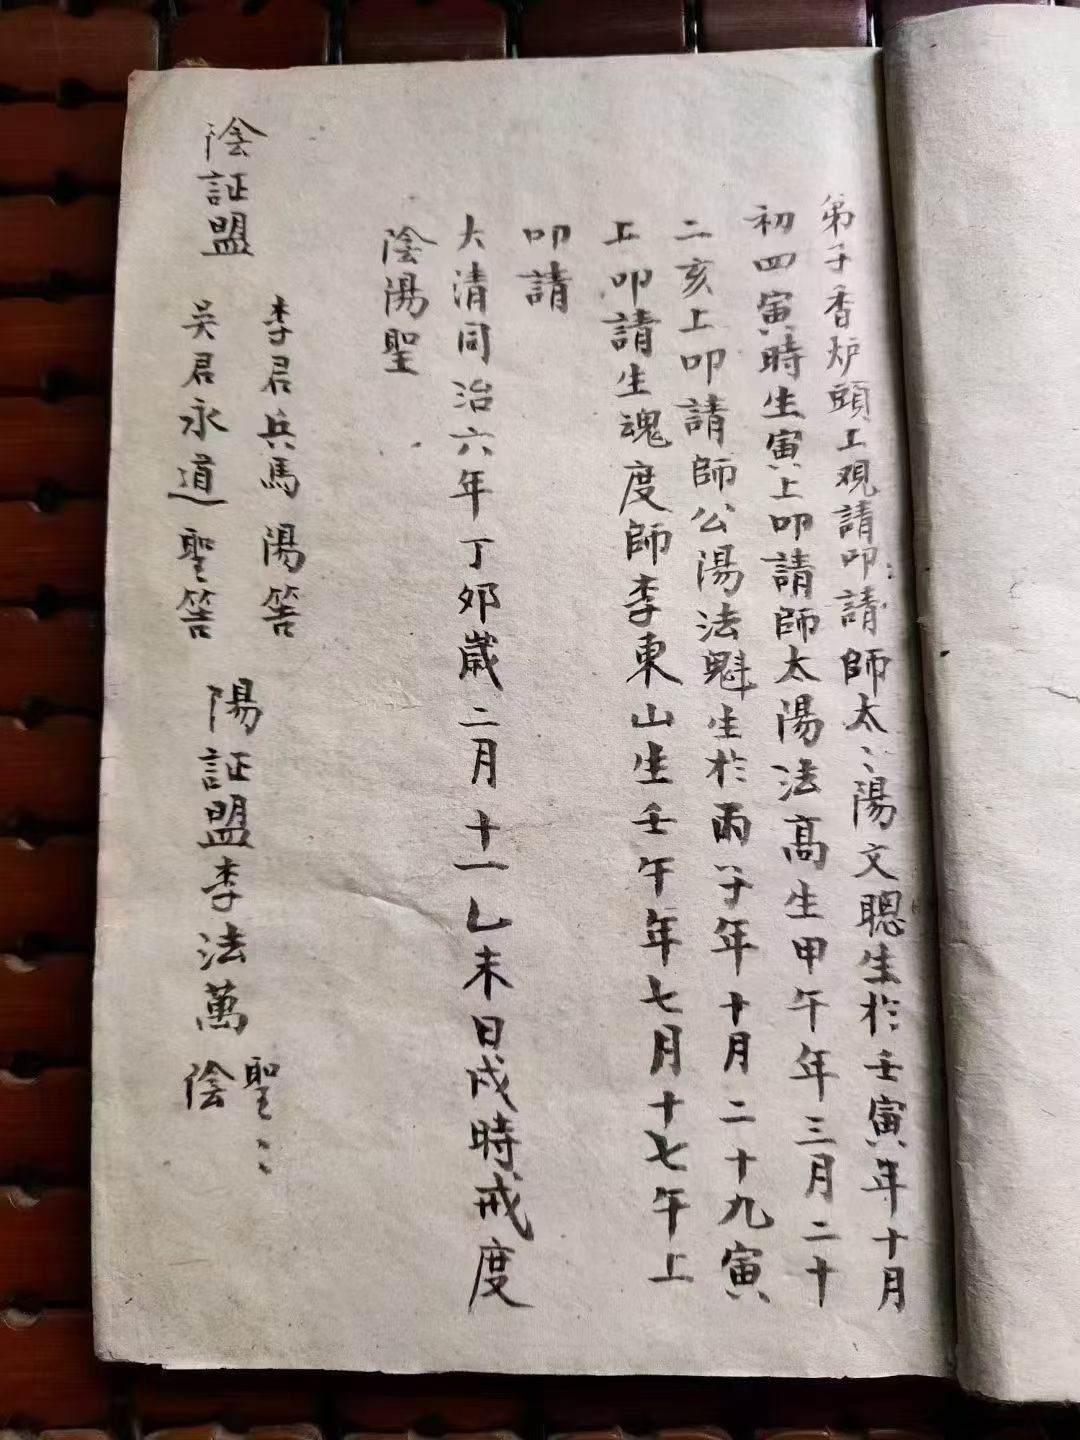 弟子香炉頭上观請叩請師太〻陽文聰生於壬寅年十月
初四寅時生寅上叩請師太陽法高生甲午年三月二十
二亥上叩請師公陽法魁生於丙子年十月二十九寅
上叩請生魂度師李東山生壬午年七月十七午上
叩請
大清同治六年丁卯歲二月十一乙未日戌時戒度
陰陽聖
陰証盟
李君兵馬陽筶
吴君永道聖筶
陽証盟李法萬
聖〻
陰